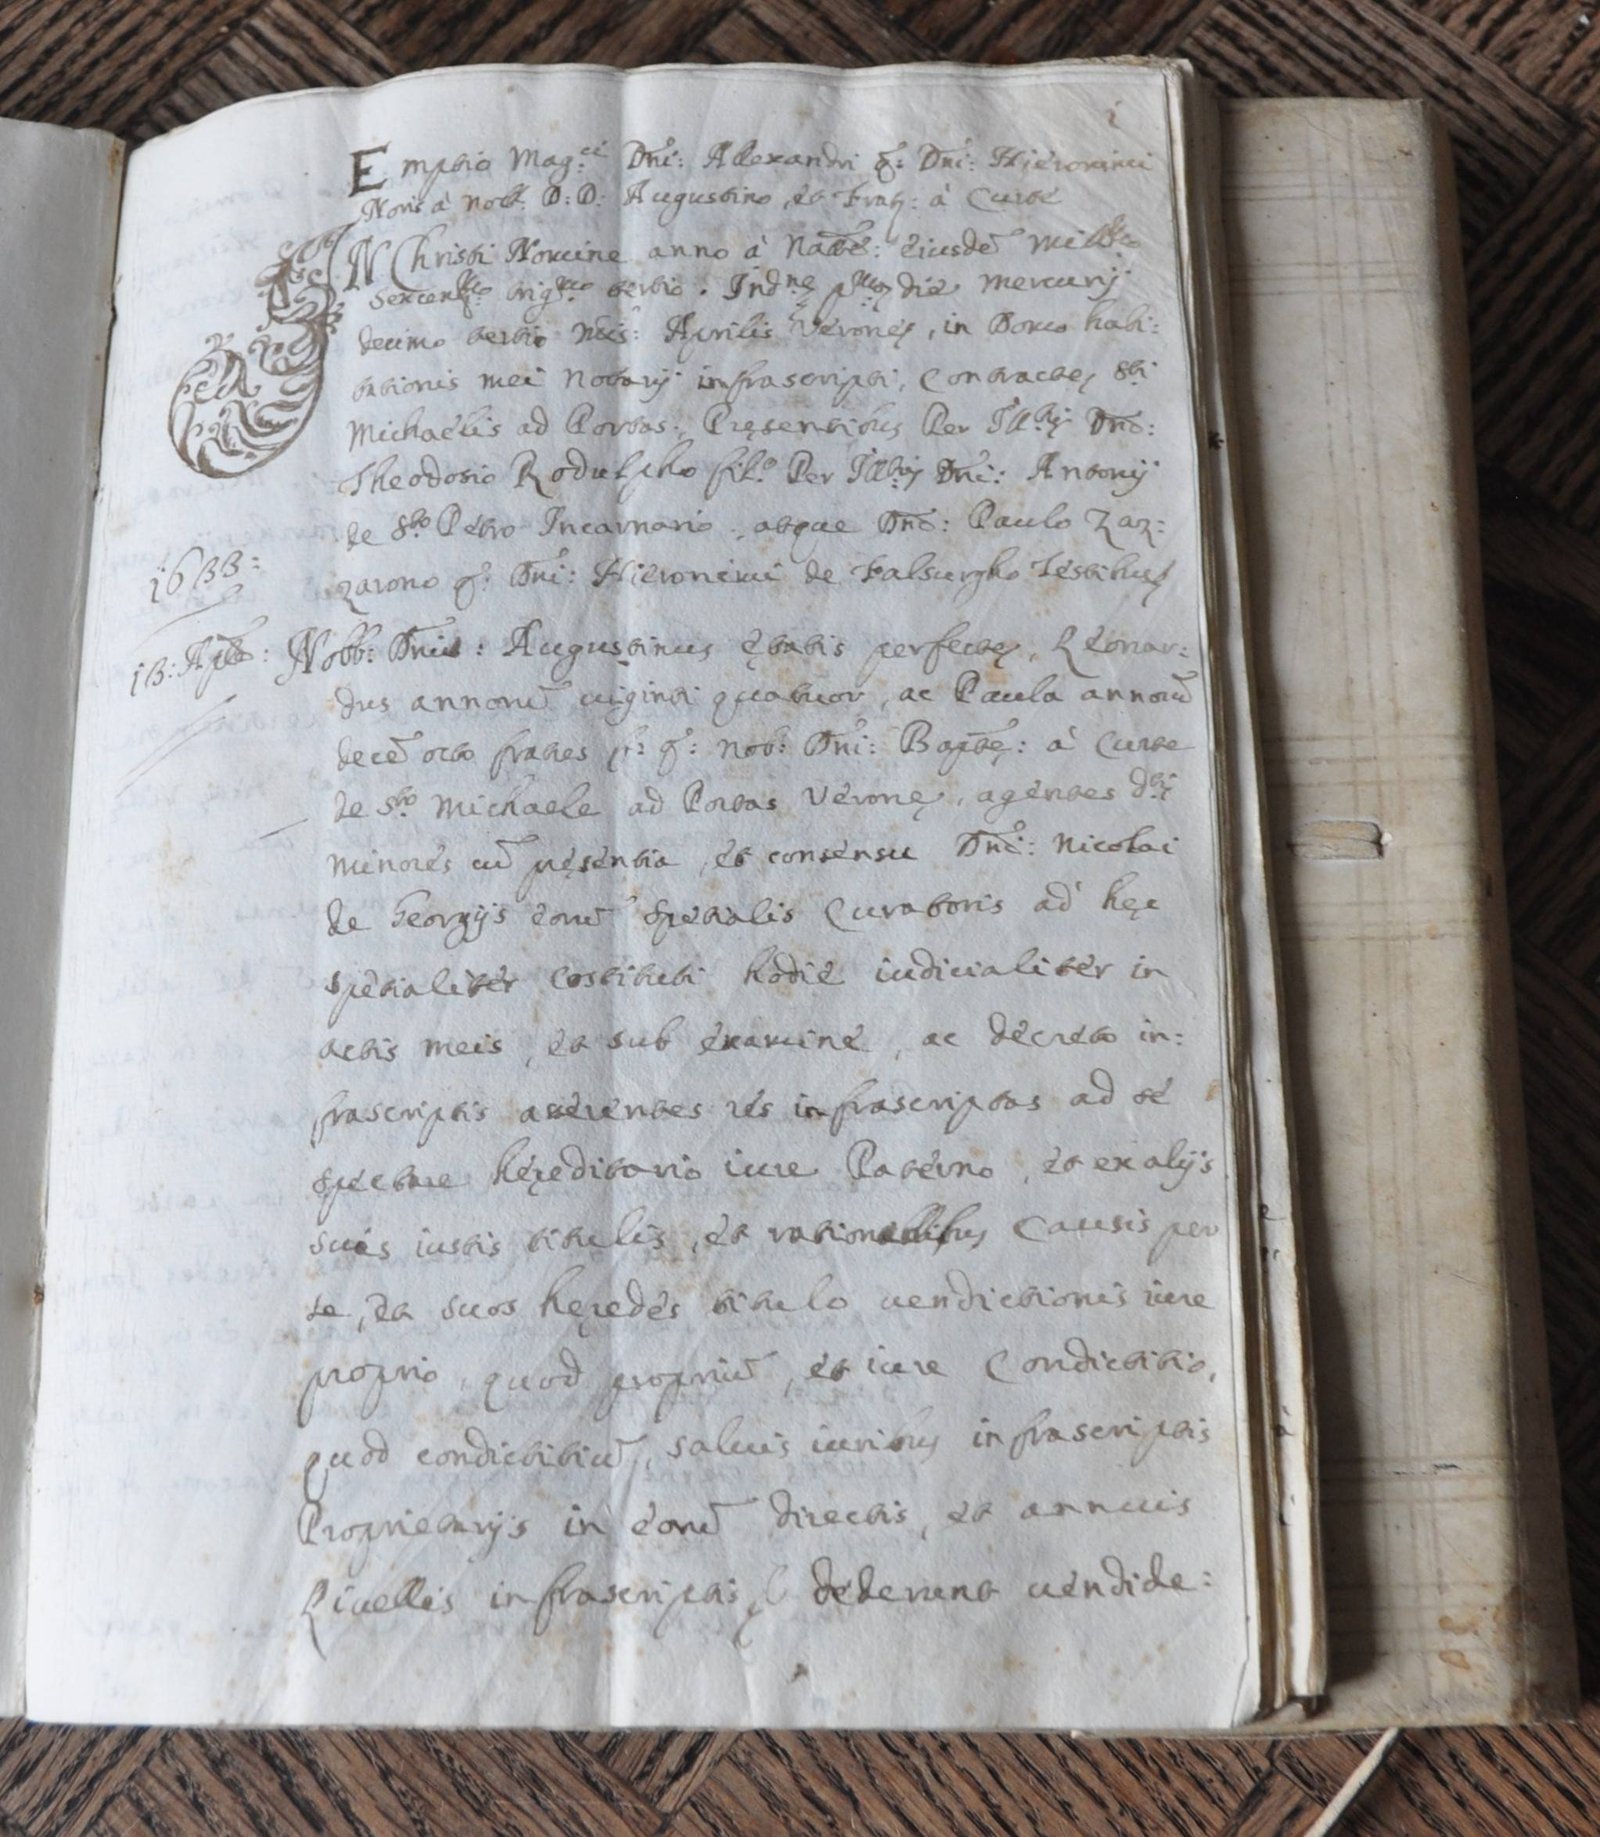 i
Emptio Mag.ci Dni: Allexandri q: Dni: Hieronimi
Noris à nobb: D: D: Augustino, et Fratr: à Curte
IN Christi Nomine anno à Natte: eiusdē Mill.mo
sexcen.mo trig.mo tertio. Ind.ne p.ma die Mercurij
decimo tertio mēs: Aprilis Veronę, in Domo habi:
tationis mei Notarij infrascripti, Contractę S.ti
Michaelis ad Portas:, Pręsentibus Per Ill.bus Dno:
Theodosio Rodulpho fil.o Per Ill.bus Dni: Antonij
de S.to Petro Incarnario, atque Dno: Paulo Zaz:
zarono q: Dni: Hieronimi de Falsurgho Testibus
1633:
13: Aple:
Nobb: Dnus: Augustinus ętatis perfectę, Leonar:
dus annorū uiginti quatuor, ac Paula annorū
decē octo fratres f: q: nob: Dni: Baptę: à Curte
de S.to Michaele ad Portas Veronę, agentes d.ti
minores cū pręsentia, et consensu Dni: Nicolai
de Georgijs eorū spetialis Curatoris ad hęc
spetialiter costituti hodie iudicialiter in
actis meis, et sub examine, ac decreto in:
frascriptis asserentes res infrascriptas ad se
spectare hęreditario iure Paterno, et ex alijs
suis iustis titulis, et rationabilibus Causis per
se, et suos hęredes titulo uendictionis iure
proprio, quod propriū, et iure Condictitio,
quod condictitiū, saluis iuribus infrascriptis
Proprietarijs in eorū directis, et annuis
Liuellis infrascriptis, dederunt uendide: